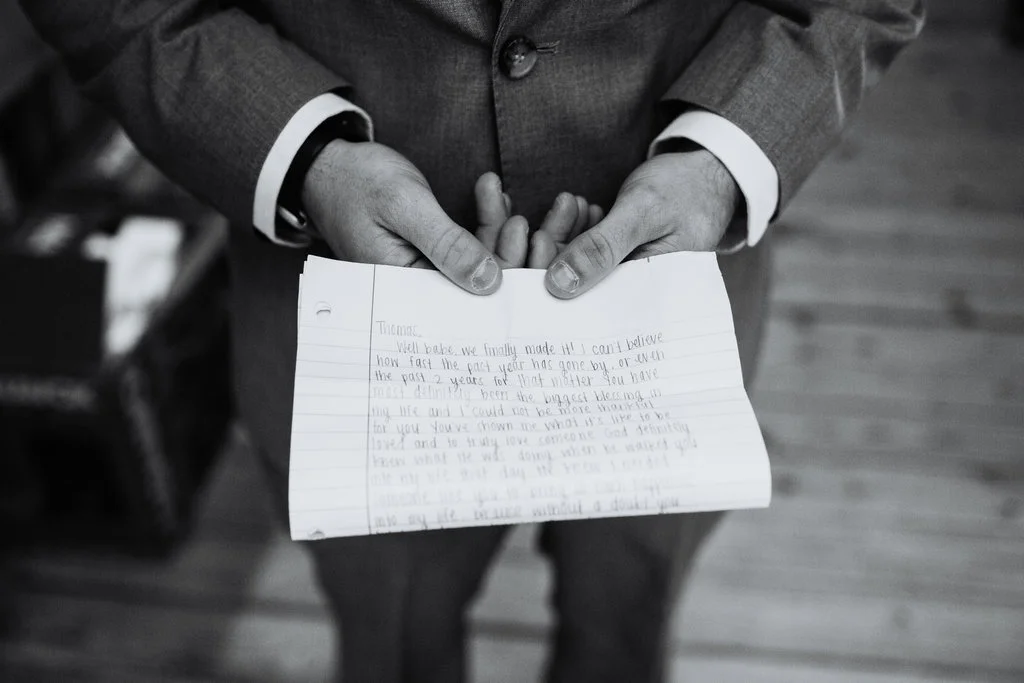 Thomas,
Well babe, we finally made it! I can't believe
how fast the past year has gone by, or even
the past 2 years for that matter. You have
most definitely been the biggest blessing in
my life and I could not be more thankful
for you. You've shown me what it's like to be
loved and to truly love someone. God definitely
knew what He was doing when he walked you
into my life that day. He knew I needed
someone like you to bring
into my life because without a doubt you